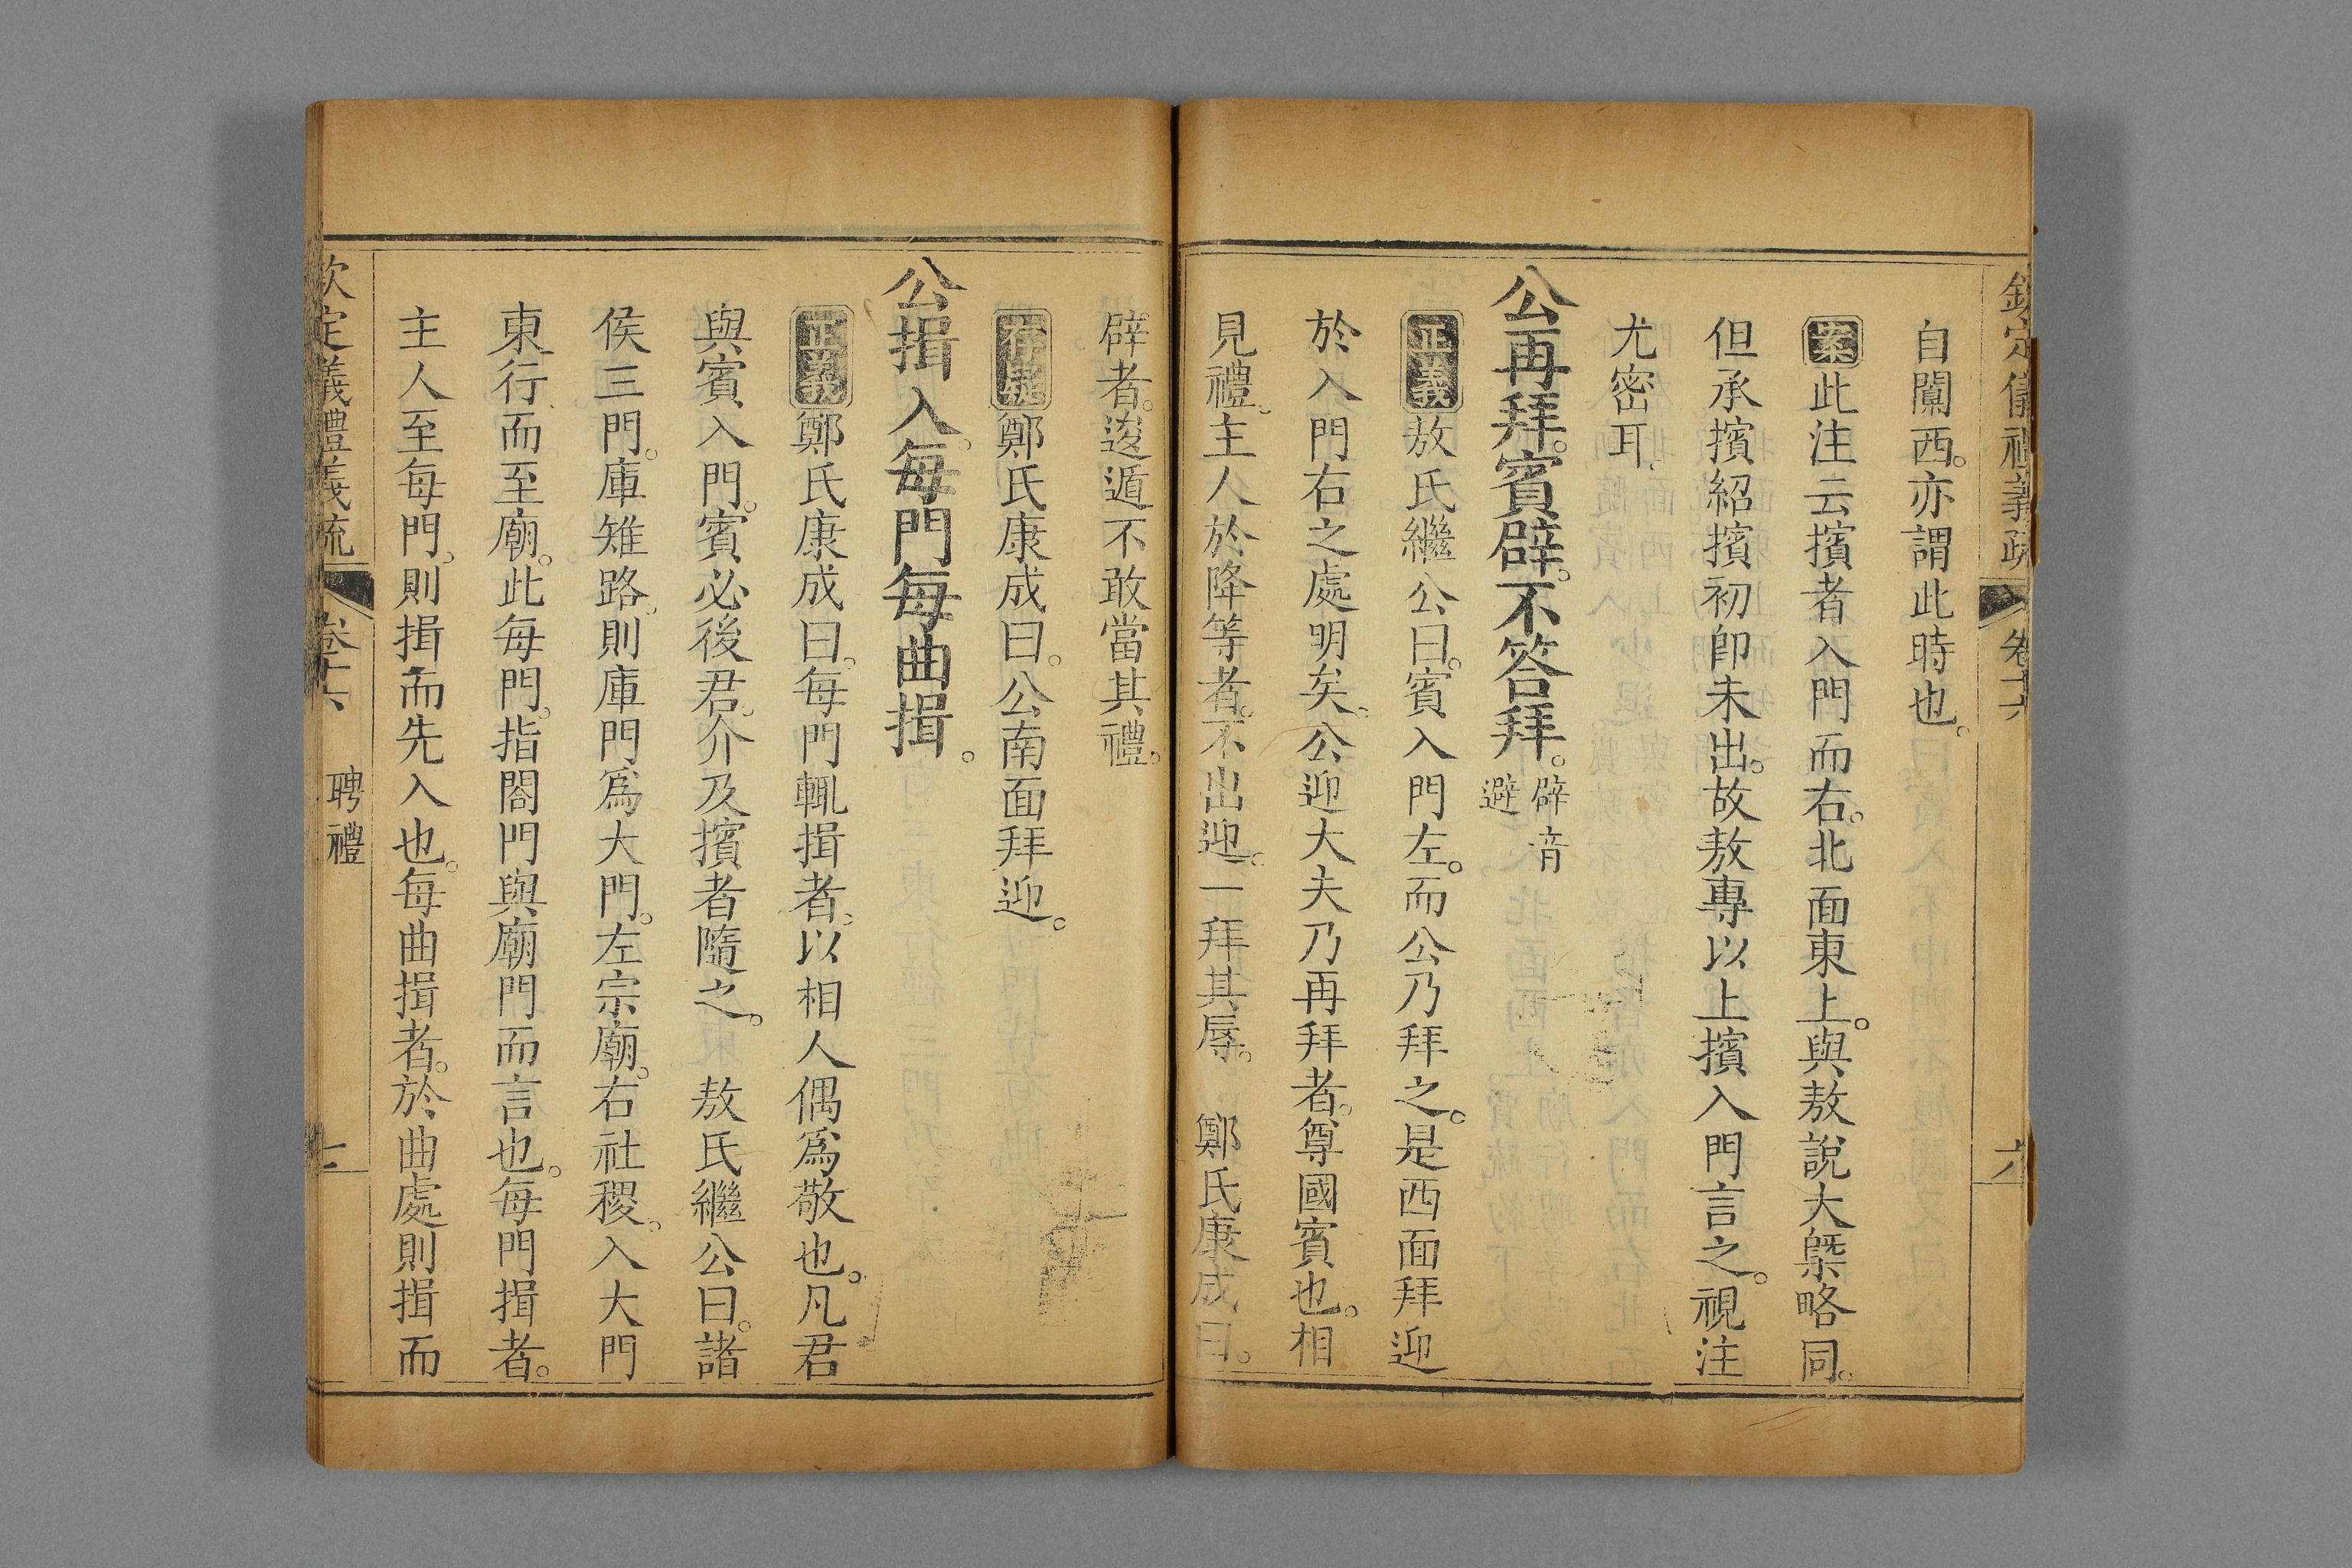 欽定儀禮義疏 卷十六 六
自闑西。亦謂此時也。
案此注云擯者入門而右。北面東上。與敖說大槩略同。
但承擯紹擯初卽未出。故敖專以上擯入門言之。視注
尤密耳。
公再拜。賓辟。不答拜。辟音避
正義敖氏繼公曰。賓入門左。而公乃拜之。是西面拜迎
於入門右之處明矣。公迎大夫乃再拜者。尊國賓也。相
見禮。主人於降等者。不出迎。一拜其辱。 鄭氏康成曰。
辟者。逡遁不敢當其禮。
存疑鄭氏康成曰。公南面拜迎。
公揖入。每門每曲揖。
正義鄭氏康成曰。每門輒揖者。以相人偶爲敬也。凡君
與賓入門。賓必後君。介及擯者隨之。 敖氏繼公曰。諸
侯三門。庫雉路。則庫門爲大門。左宗廟。右社稷。入大門
東行而至廟。此每門。指閤門與廟門而言也。每門揖者。
主人至每門。則揖而先入也。每曲揖者。於曲處則揖而
欽定儀禮義疏 卷十六 聘禮 七